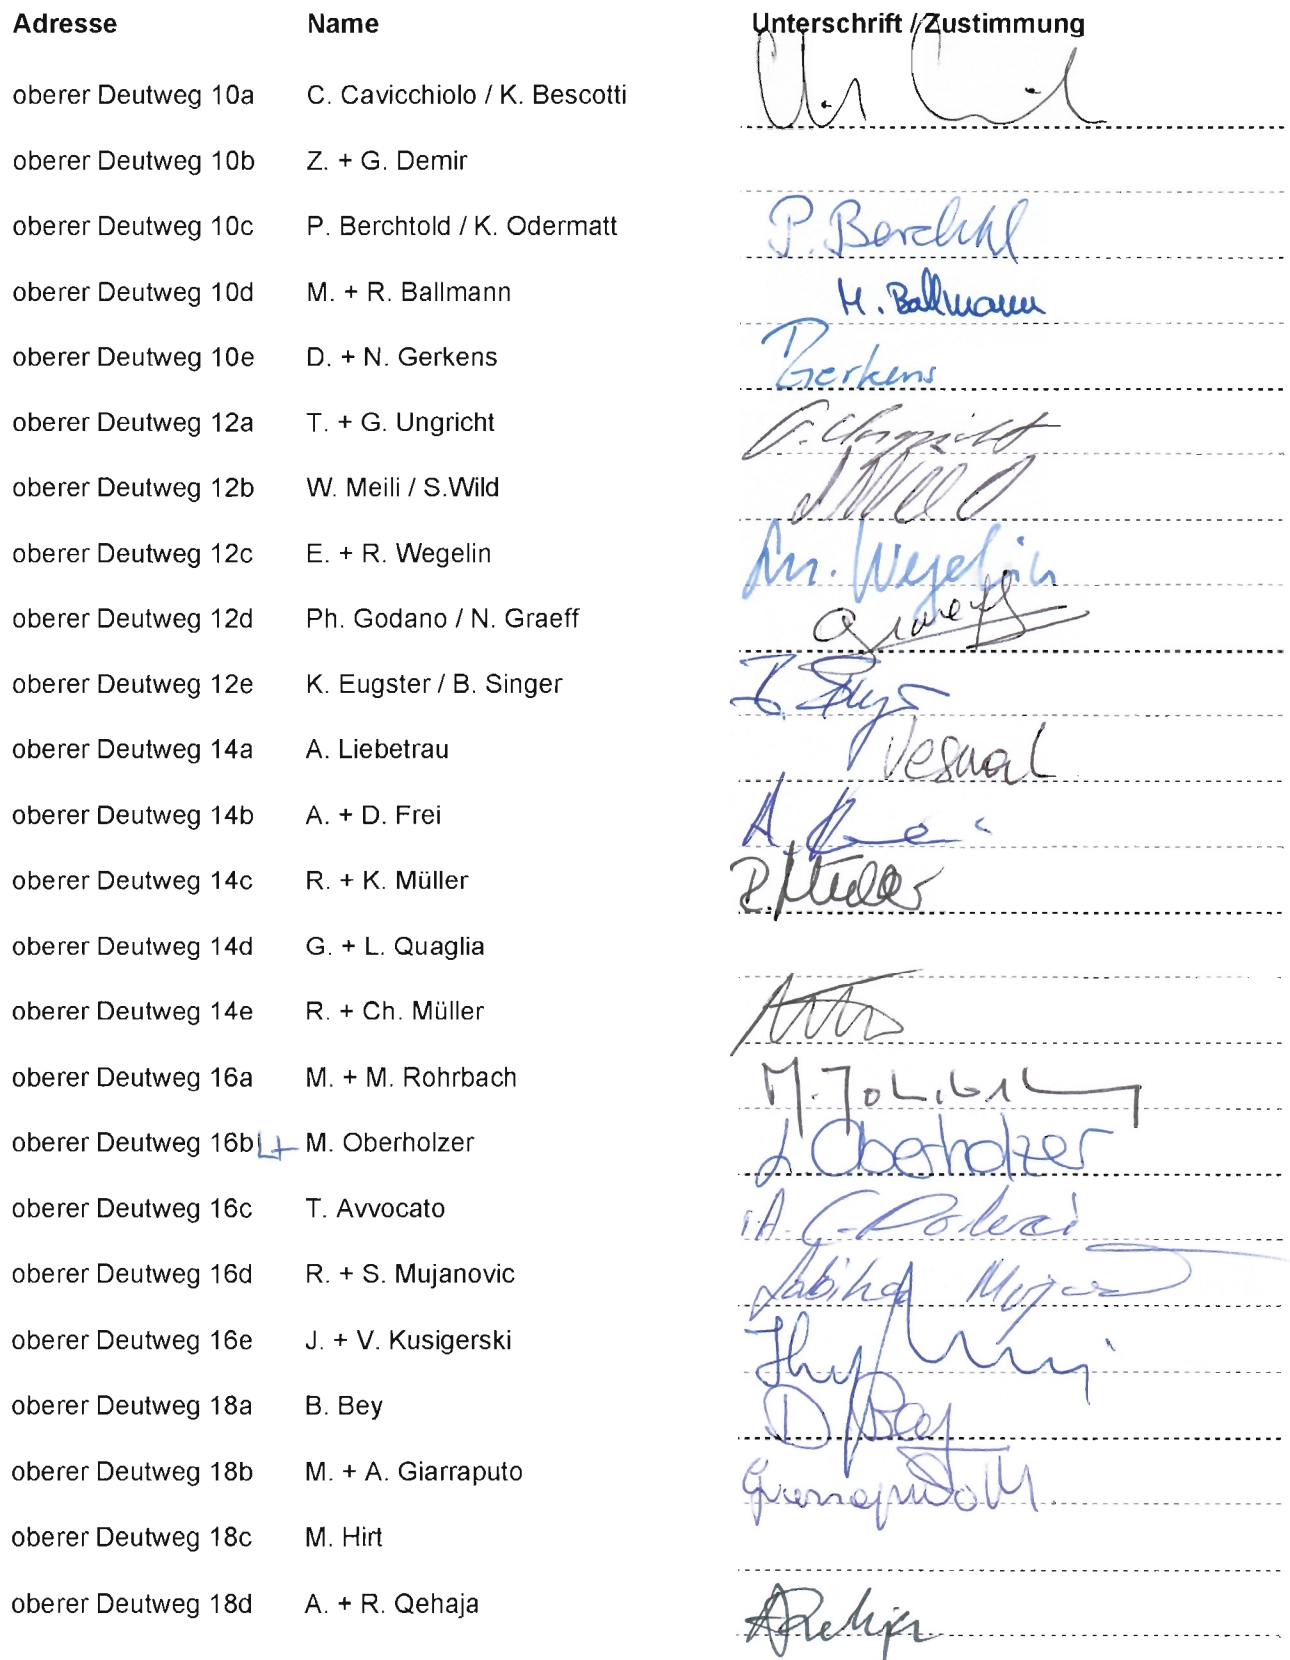 Adresse Name Unterschrift / Zustimmung
oberer Deutweg 10a C. Cavicchiolo / K. Bescotti
oberer Deutweg 10b Z. + G. Demir
oberer Deutweg 10c P. Berchtold / K. Odermatt P. Berchtold
oberer Deutweg 10d M. + R. Ballmann M. Ballmann
oberer Deutweg 10e D. + N. Gerkens Gerkens
oberer Deutweg 12a T. + G. Ungricht G. Ungricht
oberer Deutweg 12b W. Meili / S.Wild
oberer Deutweg 12c E. + R. Wegelin Wegelin
oberer Deutweg 12d Ph. Godano / N. Graeff Graeff
oberer Deutweg 12e K. Eugster / B. Singer
oberer Deutweg 14a A. Liebetrau
oberer Deutweg 14b A. + D. Frei A. Frei
oberer Deutweg 14c R. + K. Müller R. Müller
oberer Deutweg 14d G. + L. Quaglia
oberer Deutweg 14e R. + Ch. Müller
oberer Deutweg 16a M. + M. Rohrbach M.
oberer Deutweg 16b L+ M. Oberholzer L. Oberholzer
oberer Deutweg 16c T. Avvocato i.A.
oberer Deutweg 16d R. + S. Mujanovic Sabiha
oberer Deutweg 16e J. + V. Kusigerski
oberer Deutweg 18a B. Bey D. Bey
oberer Deutweg 18b M. + A. Giarraputo Giarraputo M.
oberer Deutweg 18c M. Hirt
oberer Deutweg 18d A. + R. Qehaja